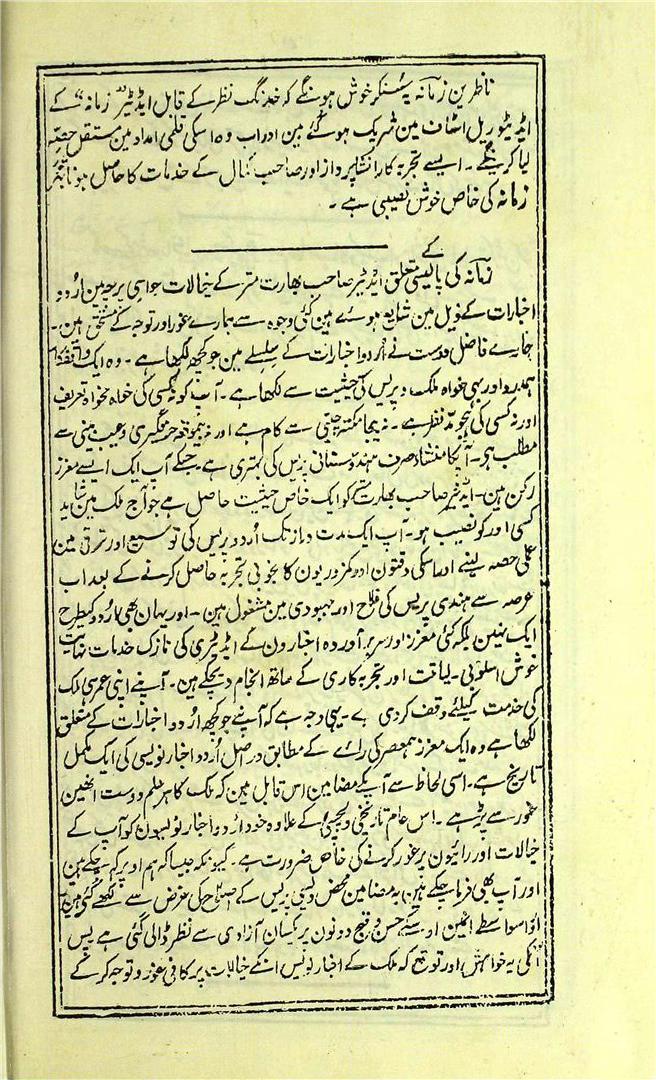 ناظرین زمانہ یہ سُنکر خوش ہونگے کہ خدنگ نظر کے قابل ایڈیٹر "زمانہ" کے
ایڈیٹوریل اسٹاف مین شریک ہو گئے ہین اور اب وہ اسکی قلمی امداد مین مستقل حصّہ
لیا کرینگے۔ ایسے تجربہ کار انشاپرداز اور صاحب کمال کے خدمات کا حاصل ہونا
زمانہ کی خاص خوش نصیبی ہے۔
زمانہ کی پالیسی کے متعلق ایڈیٹر صاحب بھارت متر کے خیالات جو اسی پرچہ مین اُردو
اخبارات کے ذیل مین شایع ہوئے ہین کئی وجوہ سے ہمارے غور اور توجہ کے مستحق ہین۔
ہمارے فاضل دوست نے اُردو اخبارات کے سلسلے مین جو کچھ لکھا ہے۔ وہ ایک
ہمدرد اور بہی خواہ ملک و پریس کی حیثیت سے لکھا ہے۔ آپ کو نہ کسی کی خواہ مخواہ تعریف
اور نہ کسی کی ہجو مدّنظر ہے۔ نہ بیجا نکتہ چینی سے کام ہے اور نہ بیموقعہ حرفگیری و عیب بینی سے
مطلب ہو۔ آپکا منشا صرف ہندوستانی پریس کی بہتری ہے۔ جسکے آپ ایک ایسے معزز
رکن ہین۔ ایڈیٹر صاحب بھارت متر کو ایک خاص حیثیت حاصل ہے جو آج ملک مین شاید
کسی اور کو نصیب ہو۔ آپ ایک مدت دراز تک اُردو پریس کی توسیع اور ترقی مین
عملی حصہ لینے اور اسکی دقتون اور کمزوریون کا بخوبی تجربہ حاصل کرنے کے بعد اب
عرصہ سے ہندی پریس کی فلاح اور بہبودی مین مشغول ہین۔ اور یہان بھی اُردو کیطرح
ایک نہین بلکہ کئی معزز اور سربرآوردہ اخبارون کے ایڈیٹری کی نازک خدمات نہایت
خوش اسلوبی۔ لیاقت اور تجربہ کاری کے ساتھ انجام دیچکے ہین۔ آپنے اپنی عمر ہی ملک
کی خدمت کیلئے وقف کردی ہے۔ یہی وجہ ہے کہ آپنے جو کچھ اُردو اخبارات کے متعلق
لکھا ہے وہ ایک معزز ہمعصر کی رائے کے مطابق دراصل اُردو اخبار نویسی کی ایک مکمل
تاریخ ہے۔ اسی لحاظ سے آپکے مضامین اس قابل ہین کہ ملک کا ہر علم دوست انھین
غور سے پڑہے۔ اس عام تاریخی دلچسپی کے علاوہ خود اُردو اخبار نویسون کو آپ کے
خیالات اور رایون پر غور کرنے کی خاص ضرورت ہے۔ کیونکہ جیسا کہ ہم اوپر کہہ چکے ہین
اور آپ بھی فرما چکے ہین یہ مضامین محض دیسی پریس کے اصلاح کی غرض سے لکھے گئے ہین
اور اسواسطے انھین اوسکے حسن و قبح دونون پر یکسان آزادی سے نظر ڈالی گئی ہے پس
انکی یہ خواہش اور توقع کہ ملک کے اخبار نویس انکے خیالات پر کافی غور و توجہ کرکے